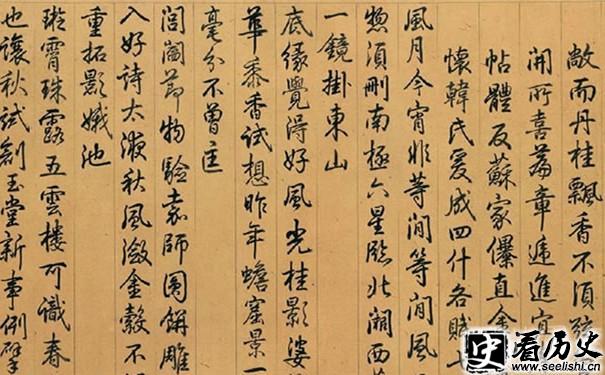 敞而丹桂飄香不須
開所喜篇章遞進宜
帖體反蘇家儤直金
懷韓氏爰成四什各賦七
風月今宵非等閒等閒風
須刪南極六星臨北西
一鏡掛東山
底緣覺得好風光桂影婆
華黍香試想昨年蟾窟景一
毫分不曾
閶闔節物驗嘉師圓餅雕
入好詩太液秋風激金縠不
重拓影娥池
璇霄珠露五雲樓可識春
也讓秋試創玉堂新事例擘
史看历史
www.seelishi.cn